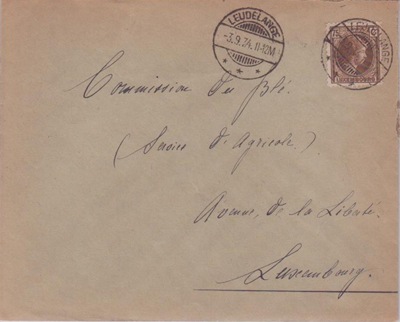 LEUDELANGE
-3.9.34.11-12M
LEUDELANGE
LUXEMBOURG
Commission du Blé.
(Service de Agricole)
Avenue, de la Liberté.
Luxembourg.